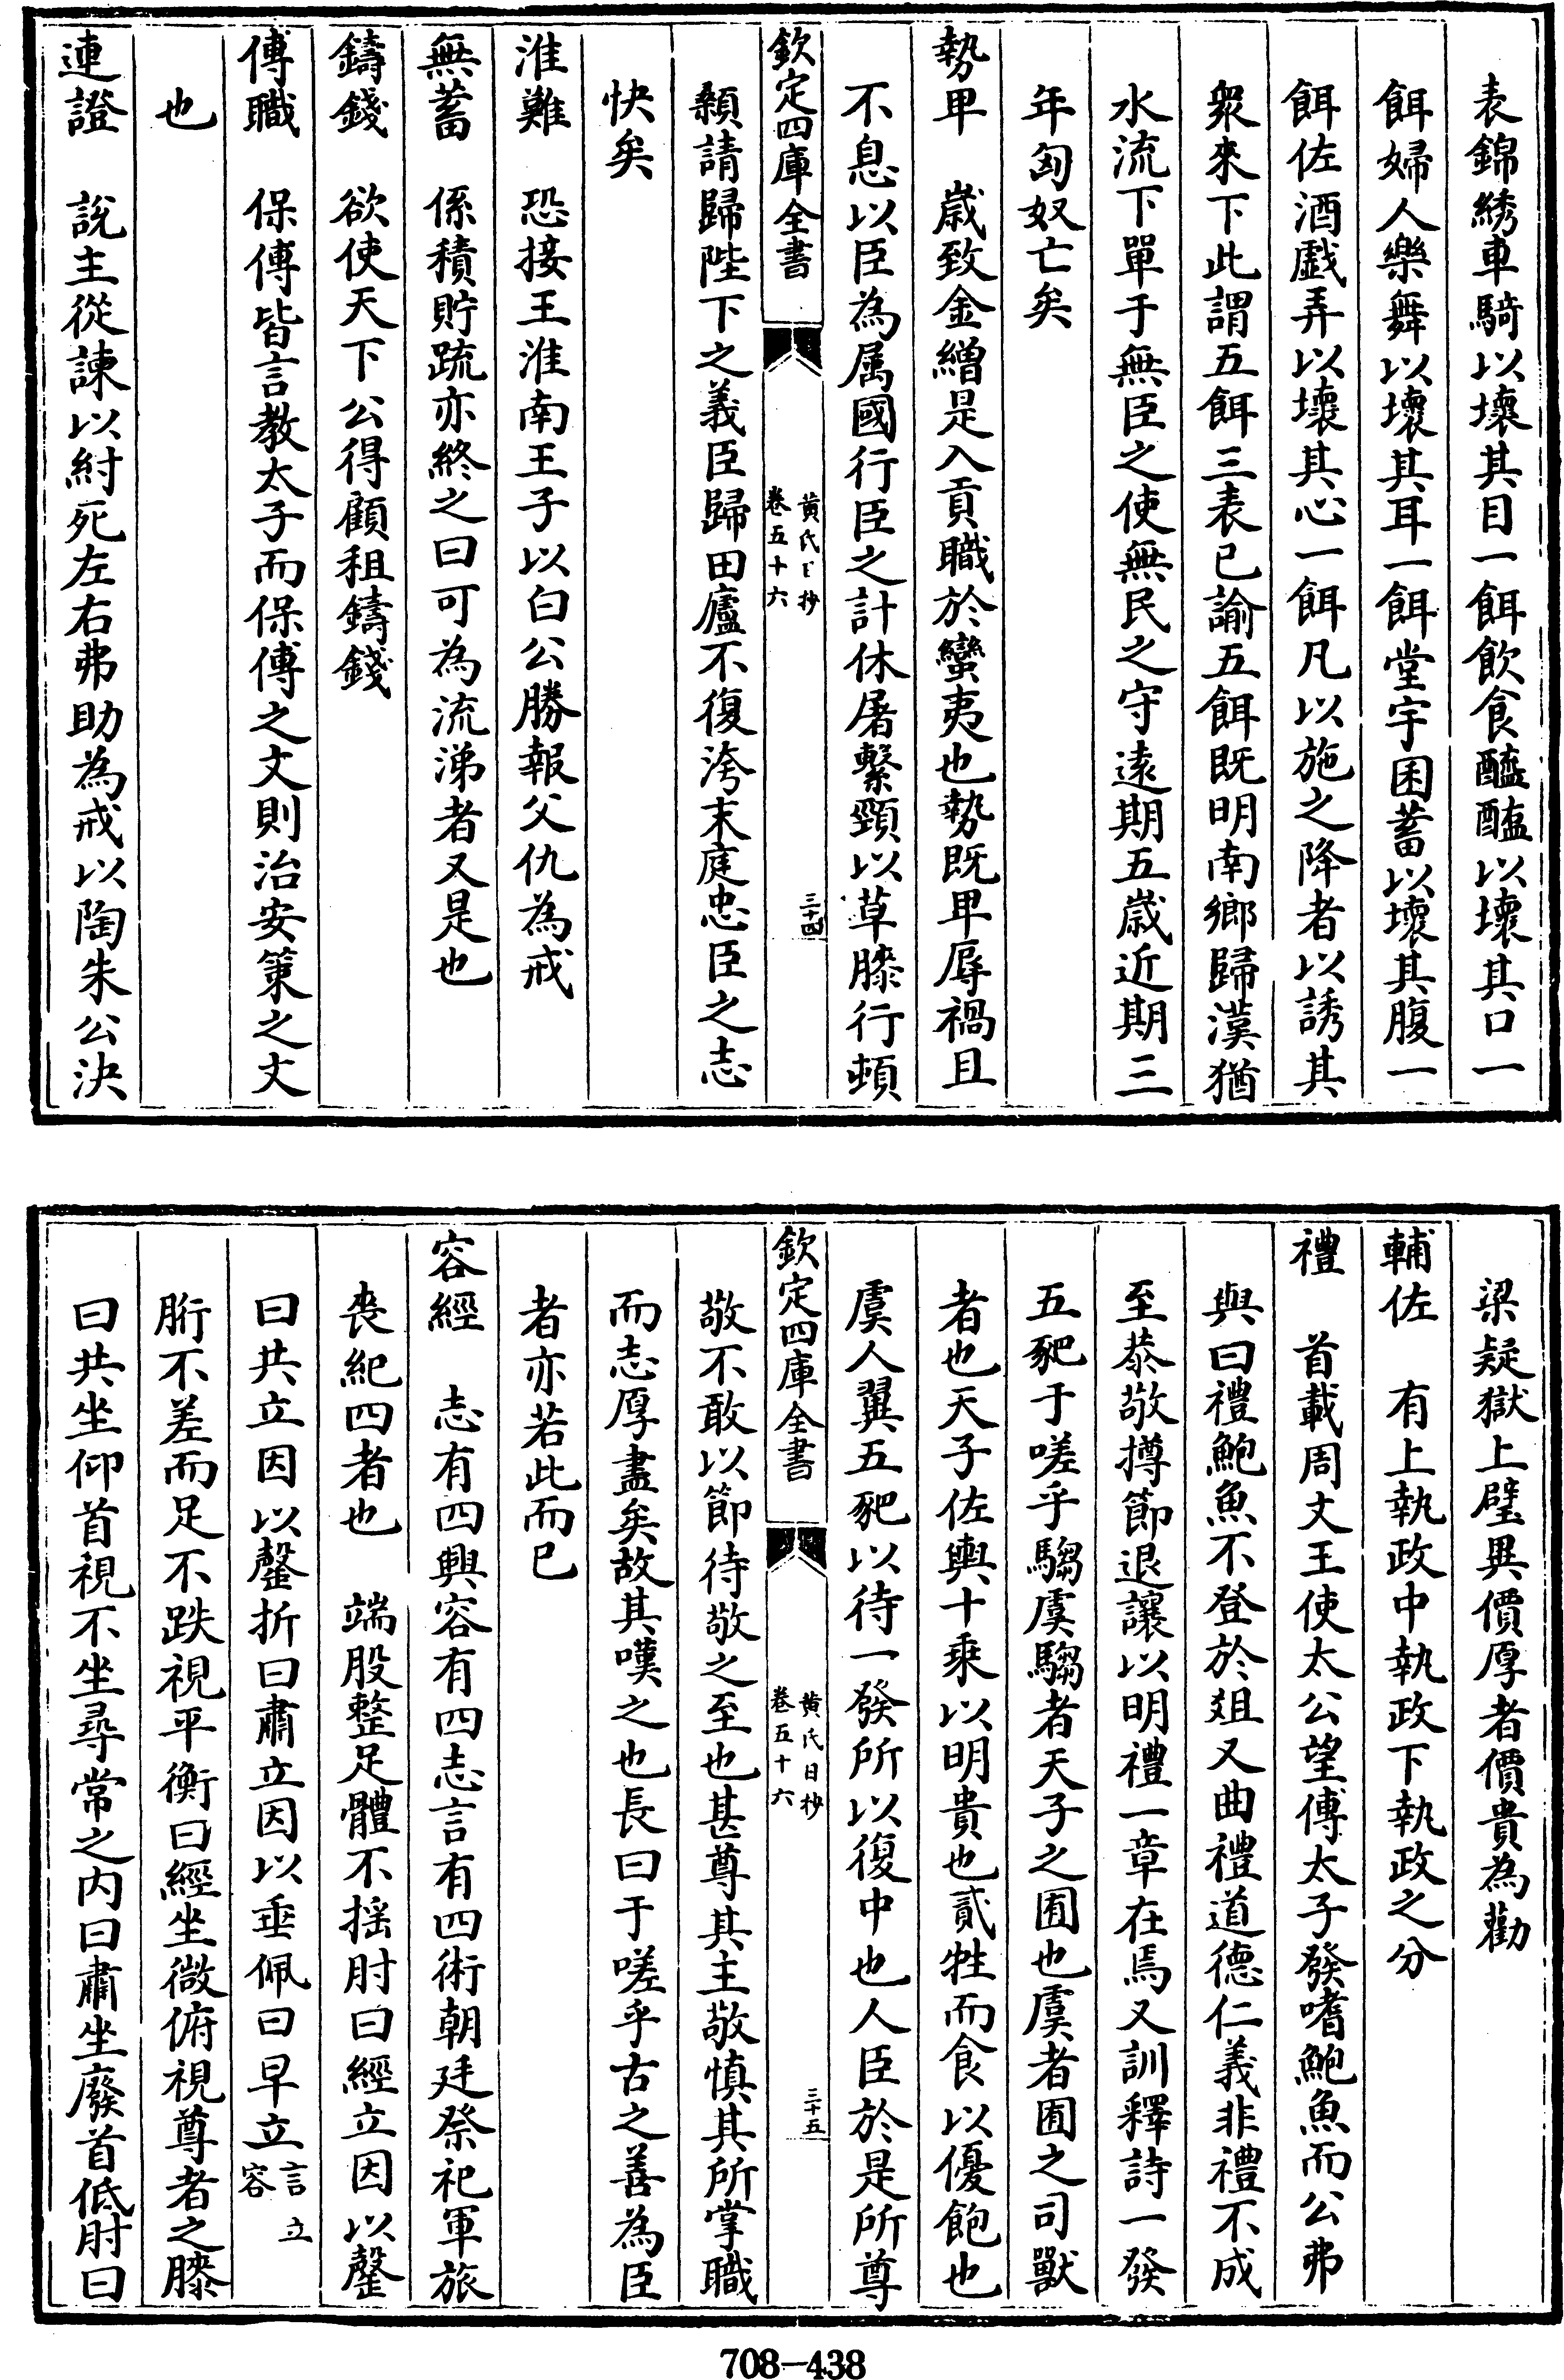 表錦綉車騎以壞其目一餌飲食醯醢以壞其口一
餌婦人樂舞以壞其耳一餌堂宇囷蓄以壞其腹一
餌佐酒戲弄以壞其心一餌凡以施之降者以誘其
衆來下此謂五餌三表已諭五餌既明南鄉歸漢猶
水流下單于無臣之使無民之守遠期五歲近期三
年匈奴亡矣
勢卑　歲致金繒是入貢職於蠻夷也勢既卑辱禍且
不息以臣為属國行臣之計休屠繫頸以草膝行頓
欽定四庫全書
黄氏日抄
卷五十六
三十四
顙請歸陛下之義臣歸田廬不復洿末庭忠臣之志
快矣
淮難　恐接王淮南王子以白公勝報父仇為戒
無蓄　係積貯疏亦終之曰可為流涕者又是也
鑄錢　欲使天下公得顧租鑄錢
傅職　保傅皆言教太子而保傅之文則治安策之文
也
連證　說主從諫以紂死左右弗助為戒以陶朱公決
梁疑獄上璧異價厚者價貴為勸
輔佐　有上執政中執政下執政之分
禮　首載周文王使太公望傅太子發嗜鮑魚而公弗
與曰禮鮑魚不登於爼又曲禮道德仁義非禮不成
至恭敬撙節退讓以明禮一章在焉又訓釋詩一發
五豝于嗟乎騶虞騶者天子之囿也虞者囿之司獸
者也天子佐輿十乘以明貴也貳牲而食以優飽也
虞人翼五豝以待一發所以復中也人臣於是所尊
欽定四庫全書
黄氏日抄
卷五十六
三十五
敬不敢以節待敬之至也甚尊其主敬慎其所掌職
而志厚盡矣故其嘆之也長曰于嗟乎古之善為臣
者亦若此而已
容經　志有四興容有四志言有四術朝廷祭祀軍旅
喪紀四者也　端股整足體不揺肘曰經立因以磬
曰共立因以磬折曰肅立因以垂佩曰卑立言立容
胻不差而足不跌視平衡曰經坐微俯視尊者之膝
曰共坐仰首視不坐尋常之内曰肅坐廢首低肘曰
708—438